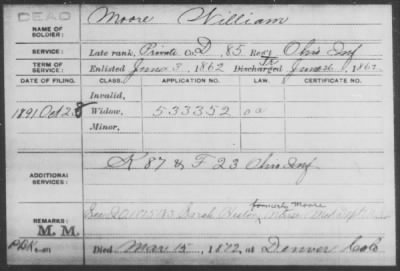 DEAD
NAME OF SOLDIER: Moore William
SERVICE: Late rank, Private Co. D, 85 Reg't Ohio Inf
TERM OF SERVICE: Enlisted June 3, 1862 Discharged 186
DATE OF FILING. CLASS. APPLICATION NO. LAW. CERTIFICATE NO.
Invalid,
1891 Oct 28 Widow, 533352
Minor,
ADDITIONAL SERVICES: K 87 & F 23 Ohio Inf
formerly Moore
REMARKS: Sarah
M. M.
Died Mar 15, 1872, at Denver Colo